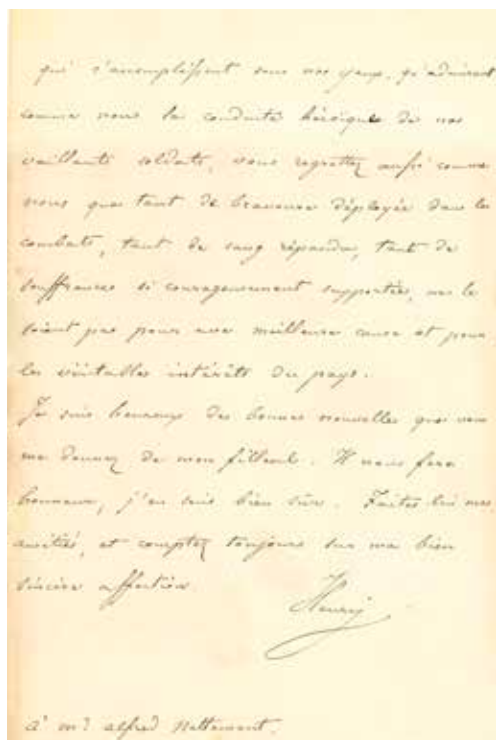 qui s'accomplissent sous nos yeux, qu'admirant
comme nous la conduite héroïque de nos
vaillants soldats, vous regrettez aussi comme
nous que tant de bravoure déployée dans les
combats, tant de sang répandu, tant de
souffrances si courageusement supportées, ne le
soient pas pour une meilleure cause et pour
les véritables intérêts du pays.
Je suis heureux des bonnes nouvelles que vous
me donnez de mon filleul. Il nous fera
honneur, j'en suis bien sûr. Faites lui mes
amitiés, et comptez toujours sur ma bien
sincère affection.
Henry
à mr alfred Nettement.